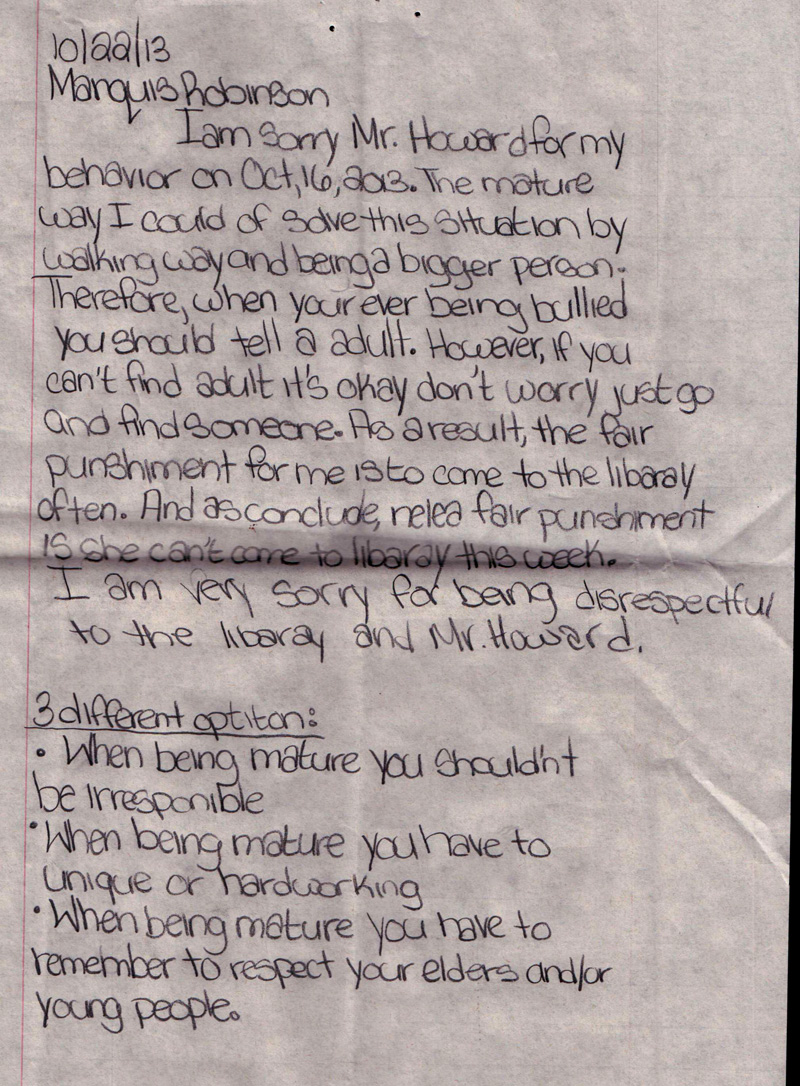 10/22/13
Marquis Robinson
I am sorry Mr. Howard for my
behavior on Oct,16,2013. The mature
way I could of solve this situation by
walking way and being a bigger person.
Therefore, when your ever being bullied
you should tell a adult. However, if you
can't find adult it's okay don't worry just go
and find someone. As a result, the fair
punshiment for me is to come to the libaray
often. And as conclude, nelea fair punshiment
is she can't come to libaray this week.
I am very sorry for being disrespectful
to the libaray and Mr. Howard.
3 different optiton:
• When being mature you shouldn't
be irresponible
• When being mature you have to
unique or hardworking
• When being mature you have to
remember to respect your elders and/or
young people.